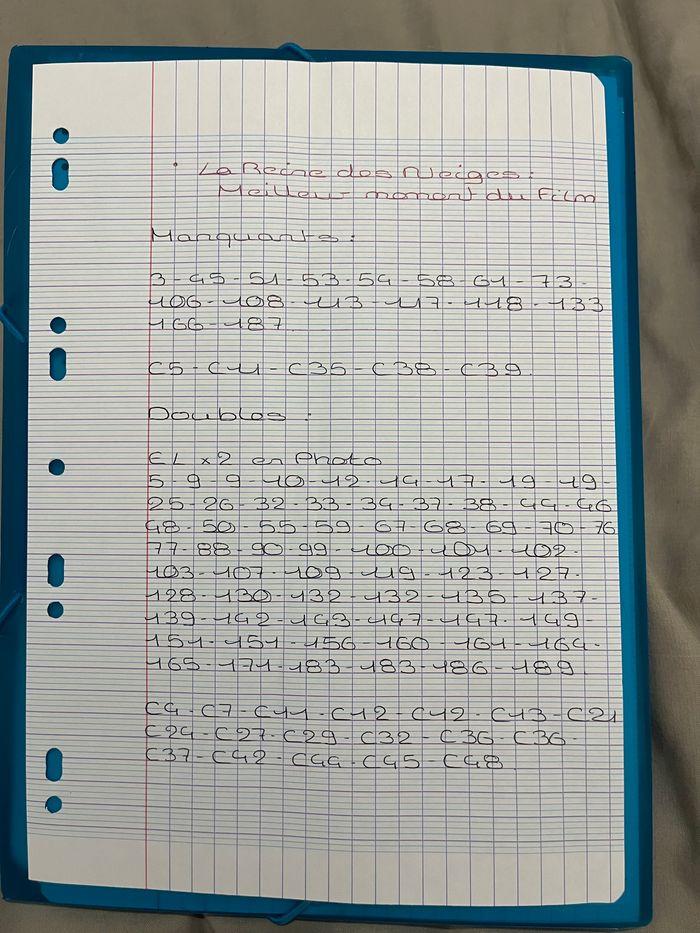 • La Reine des Neiges :
Meilleur moment du Film
Manquants :
3 - 45 - 51 - 53 - 54 - 58 - 61 - 73 -
106 - 108 - 113 - 117 - 118 - 133
166 - 187.
C5 - C11 - C35 - C38 - C39.
Doubles :
EL x2 en Photo
5 - 9 - 9 - 10 - 12 - 14 - 17 - 19 - 19 -
25 - 26 - 32 - 33 - 34 - 37 - 38 - 44 - 46
48 - 50 - 55 - 59 - 67 - 68 - 69 - 70 - 76
77 - 88 - 90 - 99 - 100 - 101 - 102 -
103 - 107 - 109 - 119 - 123 - 127 -
128 - 130 - 132 - 132 - 135 - 137 -
139 - 142 - 143 - 147 - 147 - 149 -
151 - 151 - 156 - 160 - 161 - 164 -
165 - 171 - 183 - 183 - 186 - 189.
C4 - C7 - C11 - C12 - C12 - C13 - C21
C24 - C27 - C29 - C32 - C36 - C36 -
C37 - C42 - C44 - C45 - C48.